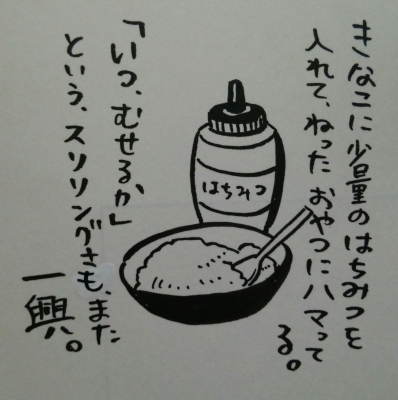 きなこに少量のはちみつを
入れて、ねったおやつにハマって
る。
はちみつ
「いつ、むせるか」
という、スリリングさも、また
一興。